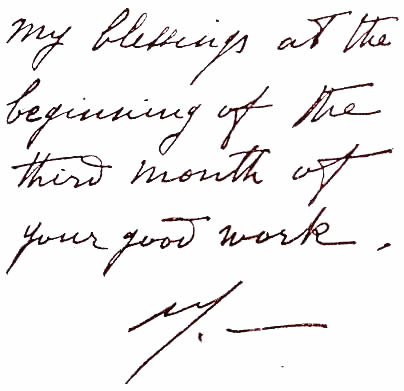 my blessings at the
beginning of the
third month of
your good work.
M. —